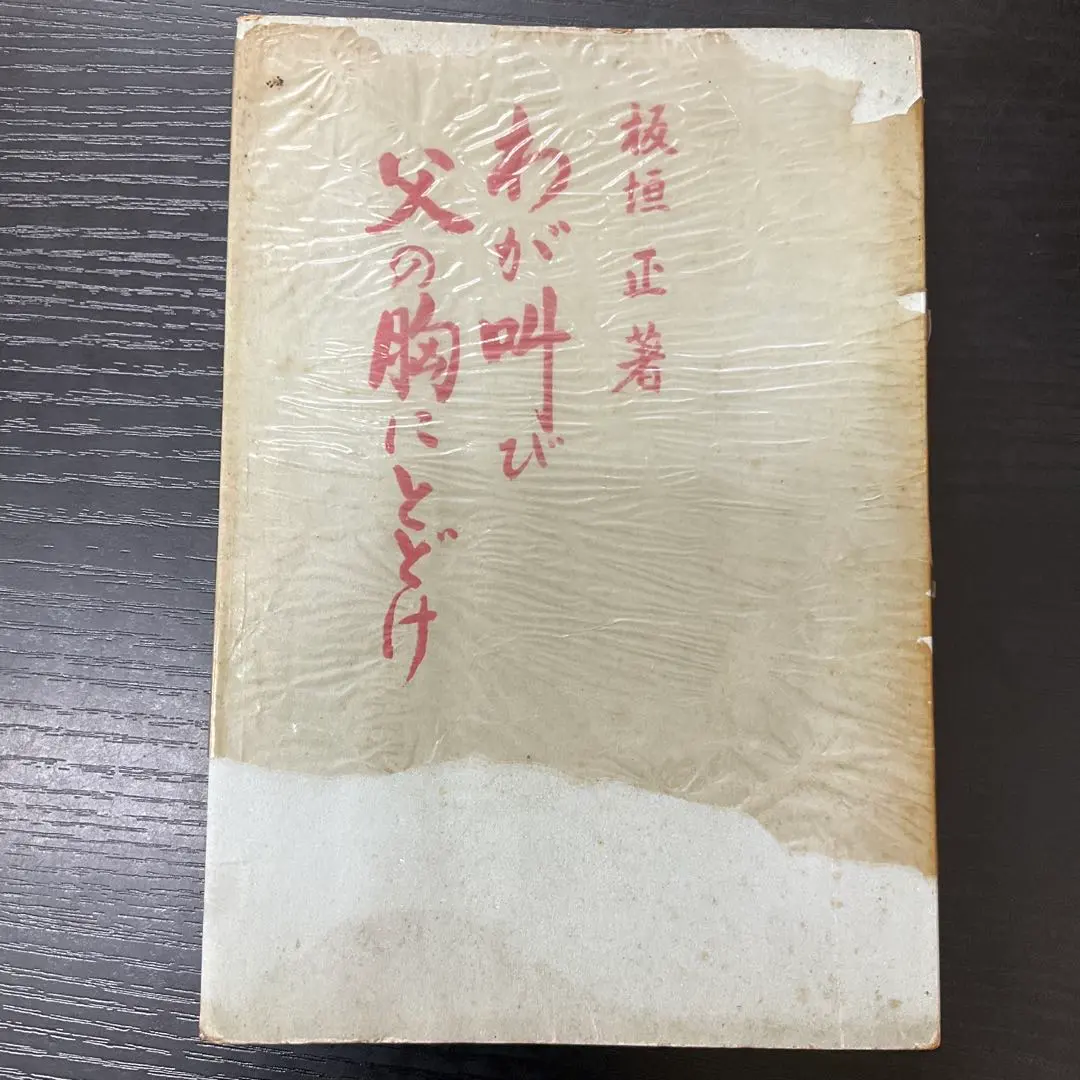 板垣 正 著
わが叫び
父の胸にとどけ